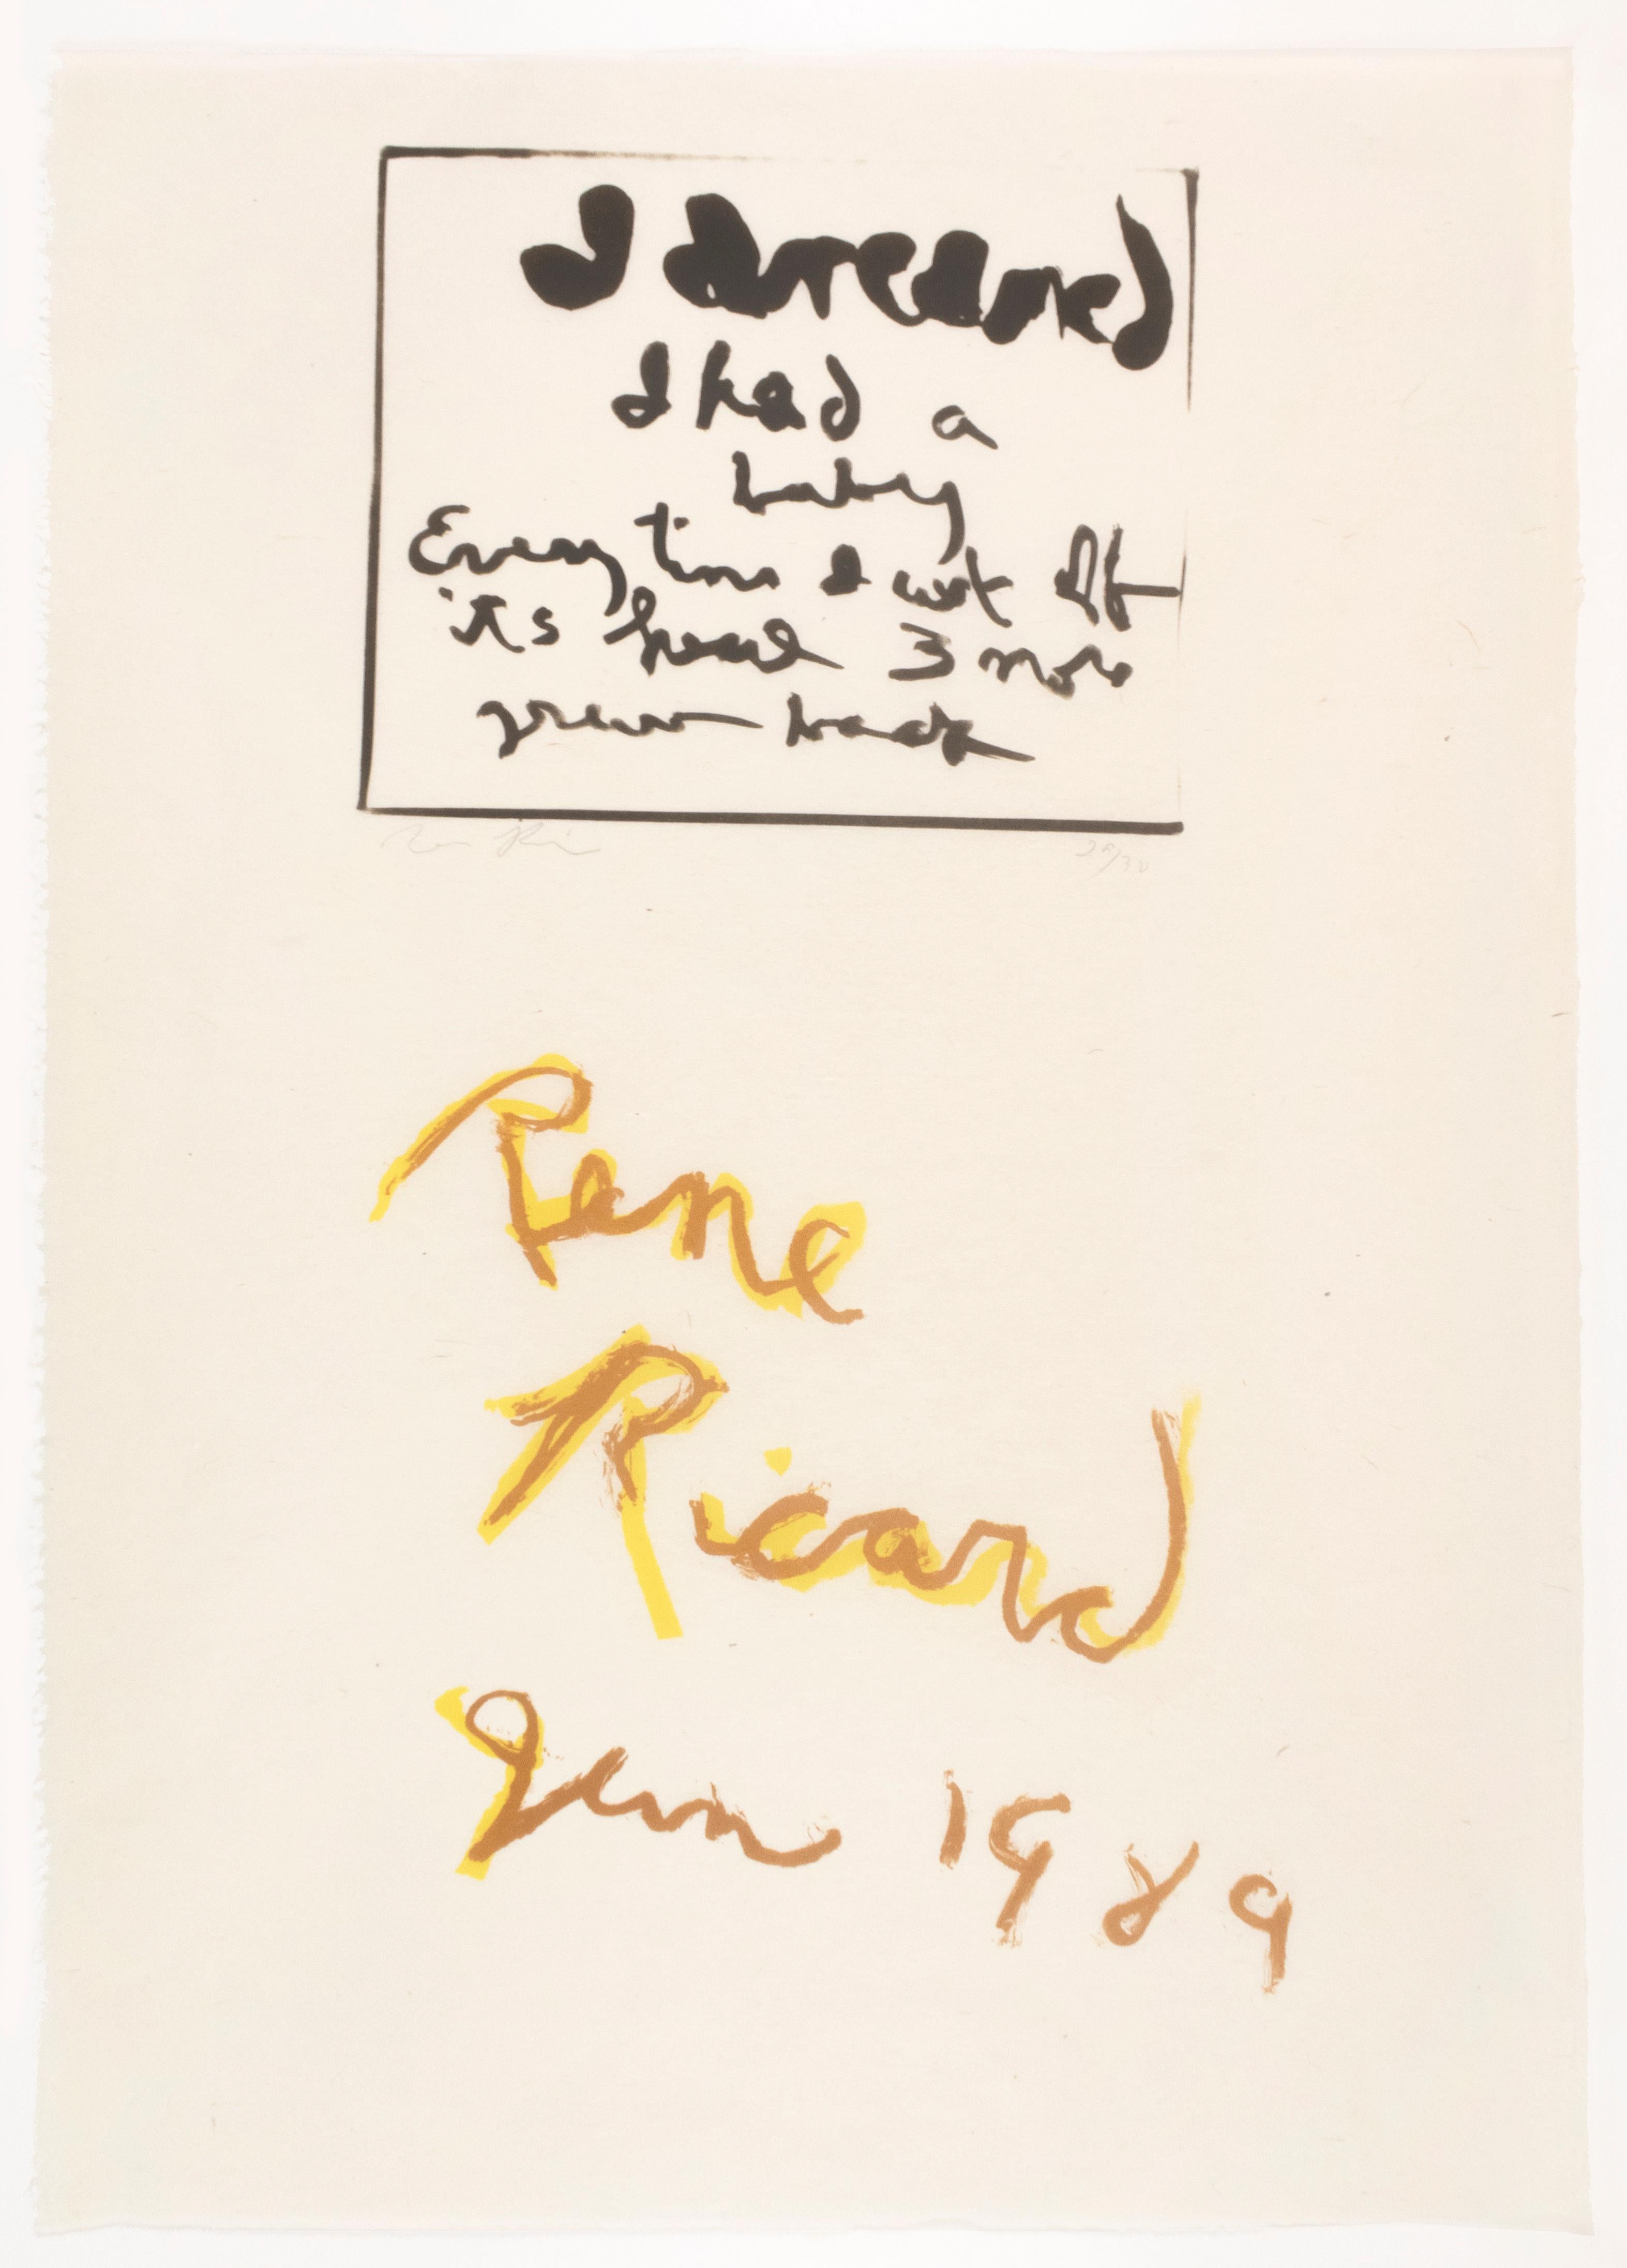 I dreamed
I had a
baby
Every time I cut off
its head 3 more
grew back
29/30
Rene
Ricard
Jan 1989